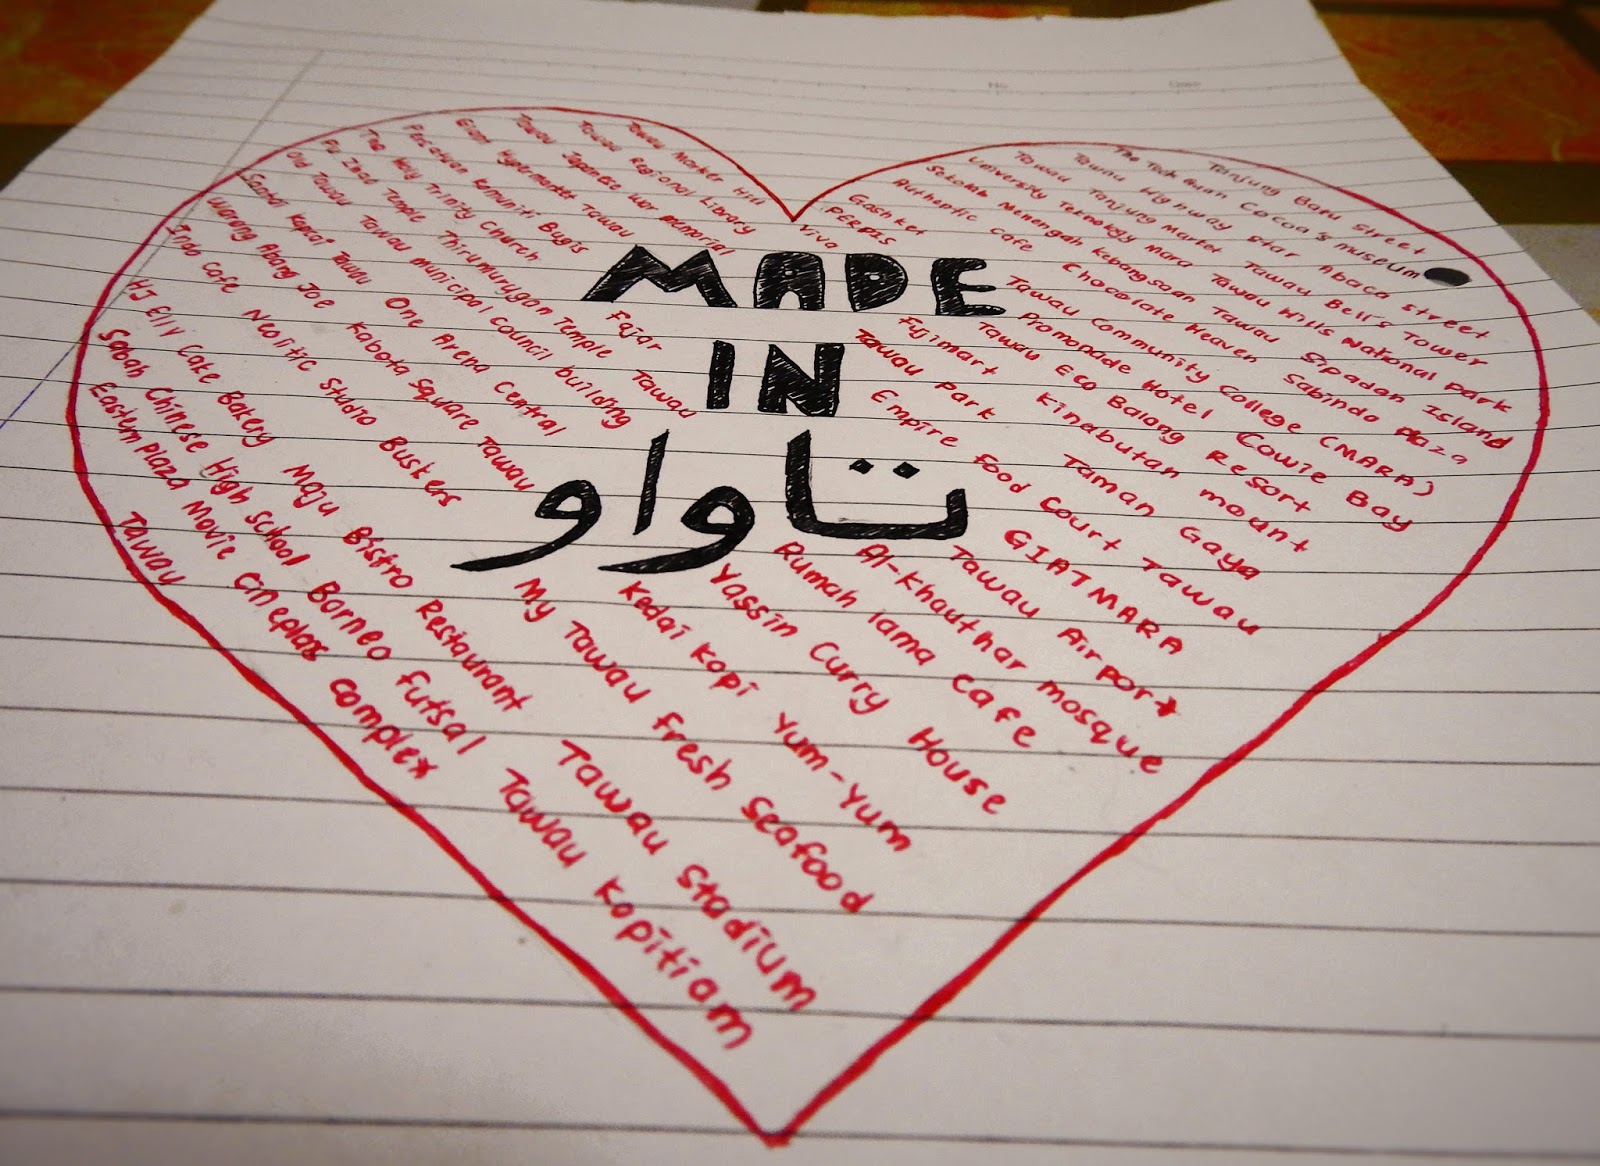 Tawau Market Hill
Tawau Regional Library
Tawau Japanese War memorial
Giant Hypermarket Tawau
Persatuan Komuniti Bugis
The Holy Trinity Church
Fajar Tawau
Pu Zhao Temple Thirumurugan Temple
Old Tawau Tawau municipal Council building
Sanba kapcai Tawau One Arena Central
Warung Abang Joe Kabota Square Tawau
Indo cafe Neolitic Studio Buskers
HJ Elly Cake Bakery Maju Bistro Restaurant
Sabah Chinese High School Borneo Futsal
Eastern plaza Movie cineplax complex
Tawau
Viva
PERPIS
Gashket
Authentic cafe Chocolate Heaven Sabindo Plaza
Sekolah Menengah kebangsaan Tawau Sipadan Island
University Teknology Mara Tawau Hills National park
Tawau Tanjung Market Tawau Bell's Tower
Tawau Highway Star Abaca Street
The Teck Guan Cocoa's museum
Tanjung Batu street
MADE
IN
تاواو
Tawau Community College (MARA)
Promopade Hotel Cowie Bay
Tawau Eco Balong Resort
Fujimart Kinabutan mount
Tawau Park Taman Gaya
Empire Food Court Tawau
GIATMARA
Tawau Airport
Al-Khauthar mosque
Rumah lama cafe
Yassin Curry House
Kedai Kopi Yum-Yum
My Tawau Fresh Seafood
Tawau Stadium
Tawau Kopitiam